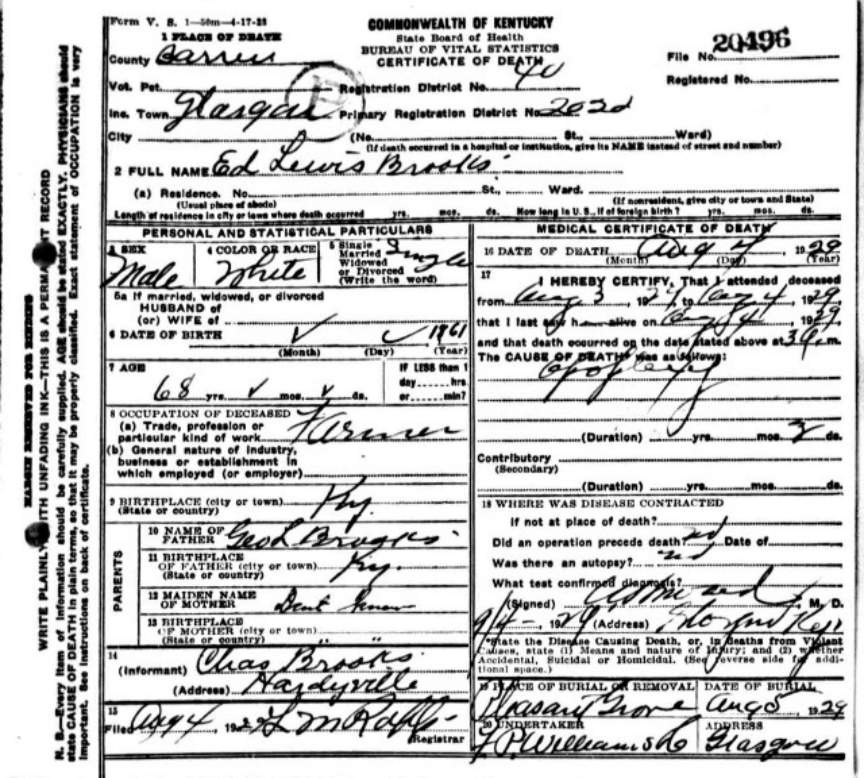 Form V. S. 1—50m—4-17-28
COMMONWEALTH OF KENTUCKY
State Board of Health
BUREAU OF VITAL STATISTICS
CERTIFICATE OF DEATH
File No. 20496
Registered No.
1 PLACE OF DEATH
County Barren
Vot. Pct. Registration District No. 40
Inc. Town Glasgow Primary Registration District No. 2020
City (No. St., Ward)
(If death occurred in a hospital or institution, give its NAME instead of street and number)
2 FULL NAME Ed Lewis Brooks
(a) Residence. No. St., Ward.
(Usual place of abode) (If nonresident, give city or town and State)
Length of residence in city or town where death occurred yrs. mos. ds. How long in U.S., if of foreign birth? yrs. mos. ds.
PERSONAL AND STATISTICAL PARTICULARS
3 SEX
Male
4 COLOR OR RACE
White
5 Single
Married
Widowed
or Divorced
(Write the word)
Single
5a If married, widowed, or divorced
HUSBAND of
(or) WIFE of
6 DATE OF BIRTH 1861
(Month) (Day) (Year)
7 AGE
68 yrs. mos. ds.
IF LESS than 1
day......hrs.
or......min?
8 OCCUPATION OF DECEASED
(a) Trade, profession or
particular kind of work Farmer
(b) General nature of industry,
business or establishment in
which employed (or employer)
9 BIRTHPLACE (city or town)
(State or country) Ky.
PARENTS
10 NAME OF
FATHER Geo L Brooks
11 BIRTHPLACE
OF FATHER (city or town)
(State or country) Ky.
12 MAIDEN NAME
OF MOTHER Dont Know
13 BIRTHPLACE
OF MOTHER (city or town)
(State or country) " "
14
(Informant) Chas Brooks
(Address) Hardyville
15
Filed Aug 4, 1929
Registrar
MEDICAL CERTIFICATE OF DEATH
16 DATE OF DEATH Aug 4, 1929
(Month) (Day) (Year)
17
I HEREBY CERTIFY, That I attended deceased
from Aug 3, 1929, to Aug 4, 1929,
that I last saw h alive on Aug 4, 1929,
and that death occurred on the date stated above at 3 m.
The CAUSE OF DEATH* was as follows:
Apoplexy
(Duration) yrs. mos. 2 ds.
Contributory
(Secondary)
(Duration) yrs. mos. ds.
18 WHERE WAS DISEASE CONTRACTED
If not at place of death?
Did an operation precede death? no Date of
Was there an autopsy? no
What test confirmed diagnosis?
(Signed) M. D.
1929 (Address) Glasgow Ky
*State the Disease Causing Death, or, in deaths from Violent
Causes, state (1) Means and nature of Injury; and (2) whether
Accidental, Suicidal or Homicidal. (See reverse side for addi-
tional space.)
19 PLACE OF BURIAL OR REMOVAL
Pleasant Grove
DATE OF BURIAL
Aug 5, 1929
20 UNDERTAKER
ADDRESS
Glasgow
MARGIN RESERVED FOR BINDING
WRITE PLAINLY WITH UNFADING INK—THIS IS A PERMANENT RECORD
N. B.—Every item of information should be carefully supplied. AGE should be stated EXACTLY. PHYSICIANS should
state CAUSE OF DEATH in plain terms, so that it may be properly classified. Exact statement of OCCUPATION is very
important. See instructions on back of certificate.